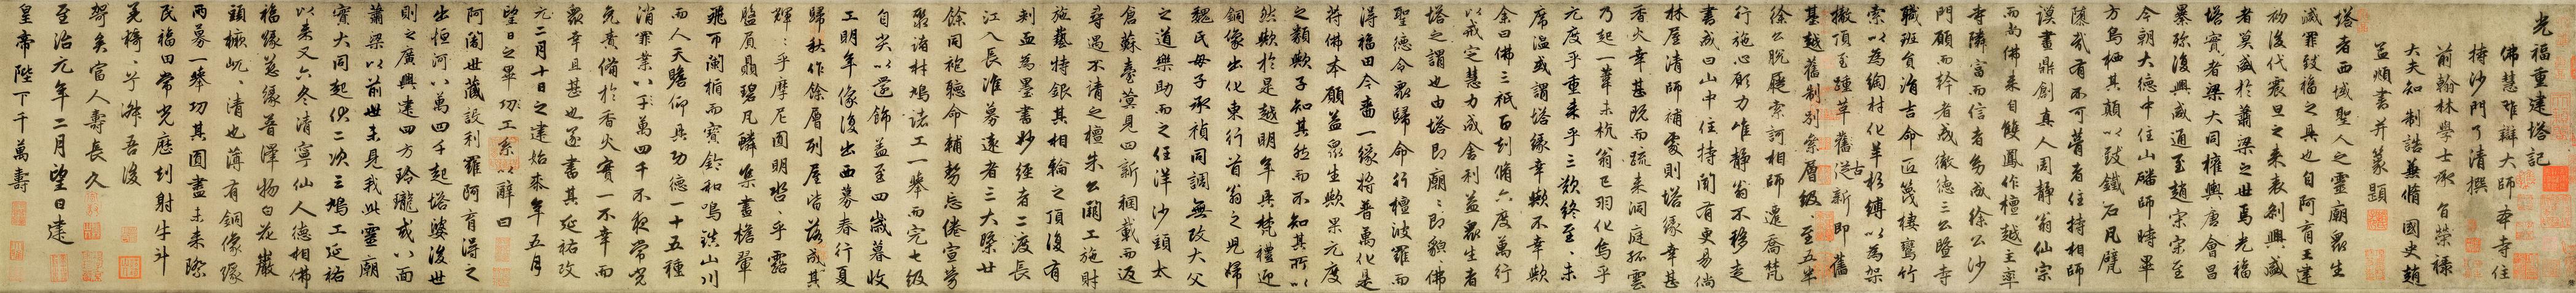 光福重建塔記
佛慧雄辯大師本寺住
持沙門了清撰
前翰林學士承旨榮祿
大夫知制誥兼脩國史趙
孟頫書并篆題
塔者西域聖人之靈廟眾生
滅罪致福之具也自阿育王建
初後代襄旦之来表剎興盛
者莫盛於蕭梁之世焉光福
塔寶者梁大同權輿唐會昌
棄殄復興咸通至趙宋宗至
今朝大德中住山磻師時畢
方烏栖其顛以致鐵石凡甓
隨裂有不可瞢者住持相師
謨畫鼎創真人周靜翁仙宗
而尚佛来自雙鳳作檀越主率
寺隣富而信者多咸徐公沙
門願而幹者咸徹德三公曁寺
職班負涓吉命匠篾棲鸞竹
索以為綯材化羊杉縛以為架
徐公脫屣索訶相師還裔梵
行施心願力唯靜翁不移走
書成曰山中住持闻有更易倘
林屋清師補處則塔緣幸甚
香火幸甚既而疏来洞庭孤雲
乃起一葦未杭翁已羽化烏乎
元度乎重来乎三歎終至未
席溫或謂塔緣幸歟不幸歟
余曰佛三祇百刦脩六度萬行
以戒定慧力成舍利益眾生者
塔之謂也由塔即廟廟即貌佛
聖德令眾歸命行檀波羅而
得福田今嗇一緣將普萬化是
符佛本願益眾生歟果元度
之類歟子知其然而不知其所以
然歟於是越明年吳梵禮迎
銅像出化東行首翁之兒婦
魏氏母子承禎同調無改大父
之道樂助而之任洋沙頭太
倉蘇臺蓂見四新稇載而返
尋遇不請之檀朱公闢工施財
施藝特銀其相輪之頂復有
刺血為墨書妙經者二渡長
江入長淮募遠者三大檗廿
餘同袍聽命輔勢忘倦宣勞
聚諸材鳩諸工一舉而完七級
自尖以還飾益至四歲暮收
工明年像復出西募春行夏
歸秋作餘層列屋皆落咸其
輝輝乎摩尼圓明沓沓乎露
盤屓贔碧凡鱗集畫檐翬
飛帀闌楯而寶鈴和鳴鎮山川
而人天瞻仰具功德一十五種
消罪業以于萬四千不夜常光
免責備於香火實一不幸而
眾幸且甚也遂書其延祐改
元二月十日之建始来年五月
望日之畢功工系以辭曰
阿闍世藏設利羅阿育得之
出恒河以萬四千起塔婆後世
則之廣興建四方玲瓏或八面
蕭梁以前世未見我此靈廟
寶大同起伏二次三鳩工延祐
以来又六冬清寧仙人德相佛
福緣慈緣普澤物白花巖
頭橛屼屼清也薄有銅像緣
兩募一舉功其圓盡未来際
民福田常光歷刦射牛斗
羌椅兮舜吾後
至治元年二月望日建
皇帝陛下千萬壽